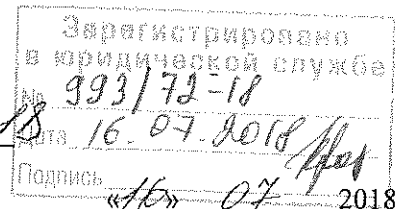 Зарегистрировано
в юридической службе
№ 993/72-18
Дата 16.07.2018
18
Подпись
«16» 07 2018